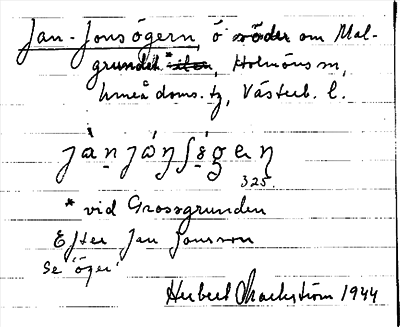 Jan-Jonsögern, ö söder om Mal-
grundet*, Holmöns sn,
Umeå doms. tg, Västerb. l.
325.
* vid Grossgrunden
Efter Jan Jonsson
Se 'öger'
Herbert Markström 1944